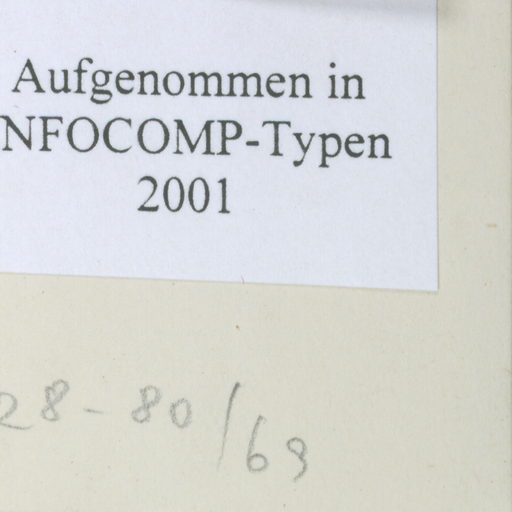 Aufgenommen in
NFOCOMP-Typen
2001
28-80/69